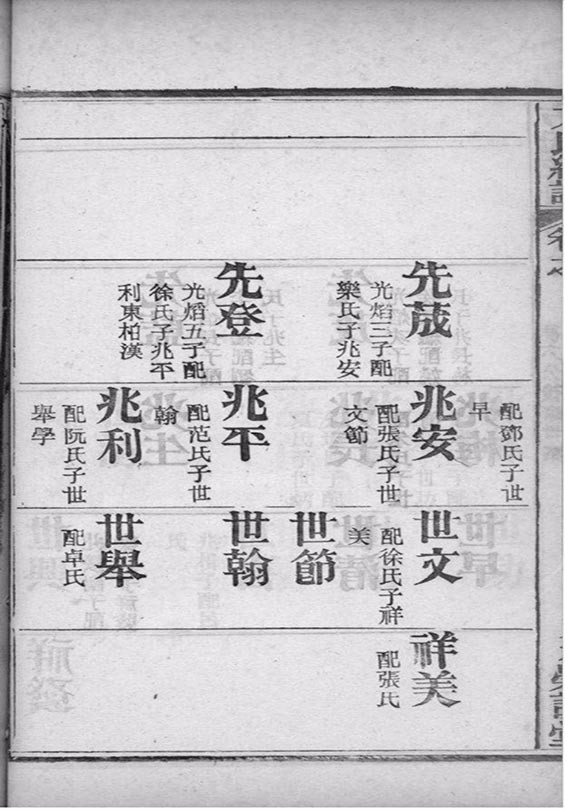 先荿
光焰三子配
樂氏子兆安
先登
光焰五子配
徐氏子兆平
利東柏漢
配鄧氏子世
早
兆安
配張氏子世
文節
兆平
配范氏子世
翰
兆利
配阮氏子世
舉學
世文
配徐氏子祥
美
世節
世翰
世舉
配卓氏
祥美
配張氏